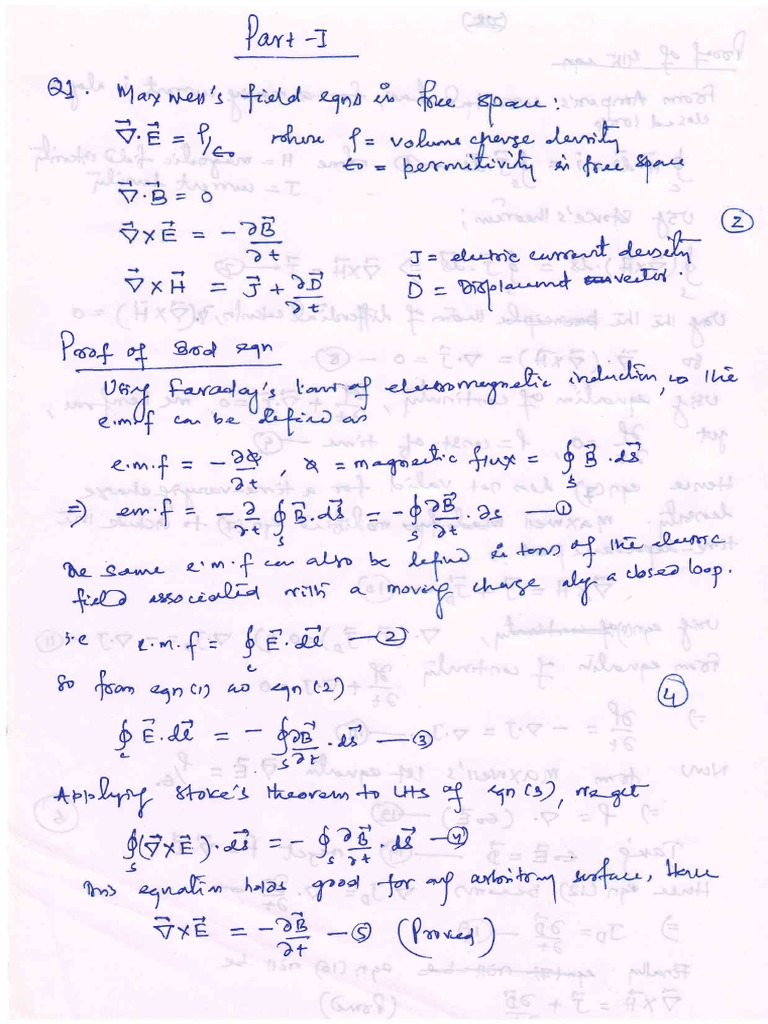 Part-I
Q1. Maxwell's field eqns in free space:
∇⃗·E⃗ = ρ/ε₀ where ρ = volume charge density
ε₀ = permitivity in free space
∇⃗·B⃗ = 0
②
∇⃗×E⃗ = -∂B⃗/∂t
J = electric current density
∇⃗×H⃗ = J⃗ + ∂D⃗/∂t
D⃗ = Displacement vector.
Proof of 3rd eqn
Using Faraday's law of electromagnetic induction, so the
e.m.f can be defined as
e.m.f = -∂φ/∂t, φ = magnetic flux = ∮_S B⃗·ds⃗
⇒) emf = -∂/∂t ∮_S B⃗·ds⃗ = -∮_S ∂B⃗/∂t·∂s —①
The same e.m.f can also be defined in terms of the electric
field associated with a moving charge along a closed loop.
i.e e.m.f = ∮_c E⃗·dl⃗ —②
So from eqn(1) and eqn(2)
④
∮_c E⃗·dl⃗ = -∮_S ∂B⃗/∂t·ds⃗ —③
Applying Stoke's theorem to LHS of eqn(3), we get
∮_S(∇⃗×E⃗)·ds⃗ = -∮_S ∂B⃗/∂t·ds⃗ —④
This equation holds good for any arbitrary surface, Hence
∇⃗×E⃗ = -∂B⃗/∂t —⑤ (Proved)